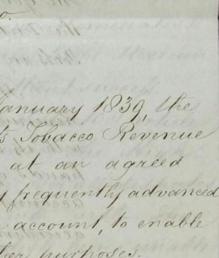 January 1839, the
's Tobacco Revenue
at an agreed
frequently advanced
account, to enable
purposes.